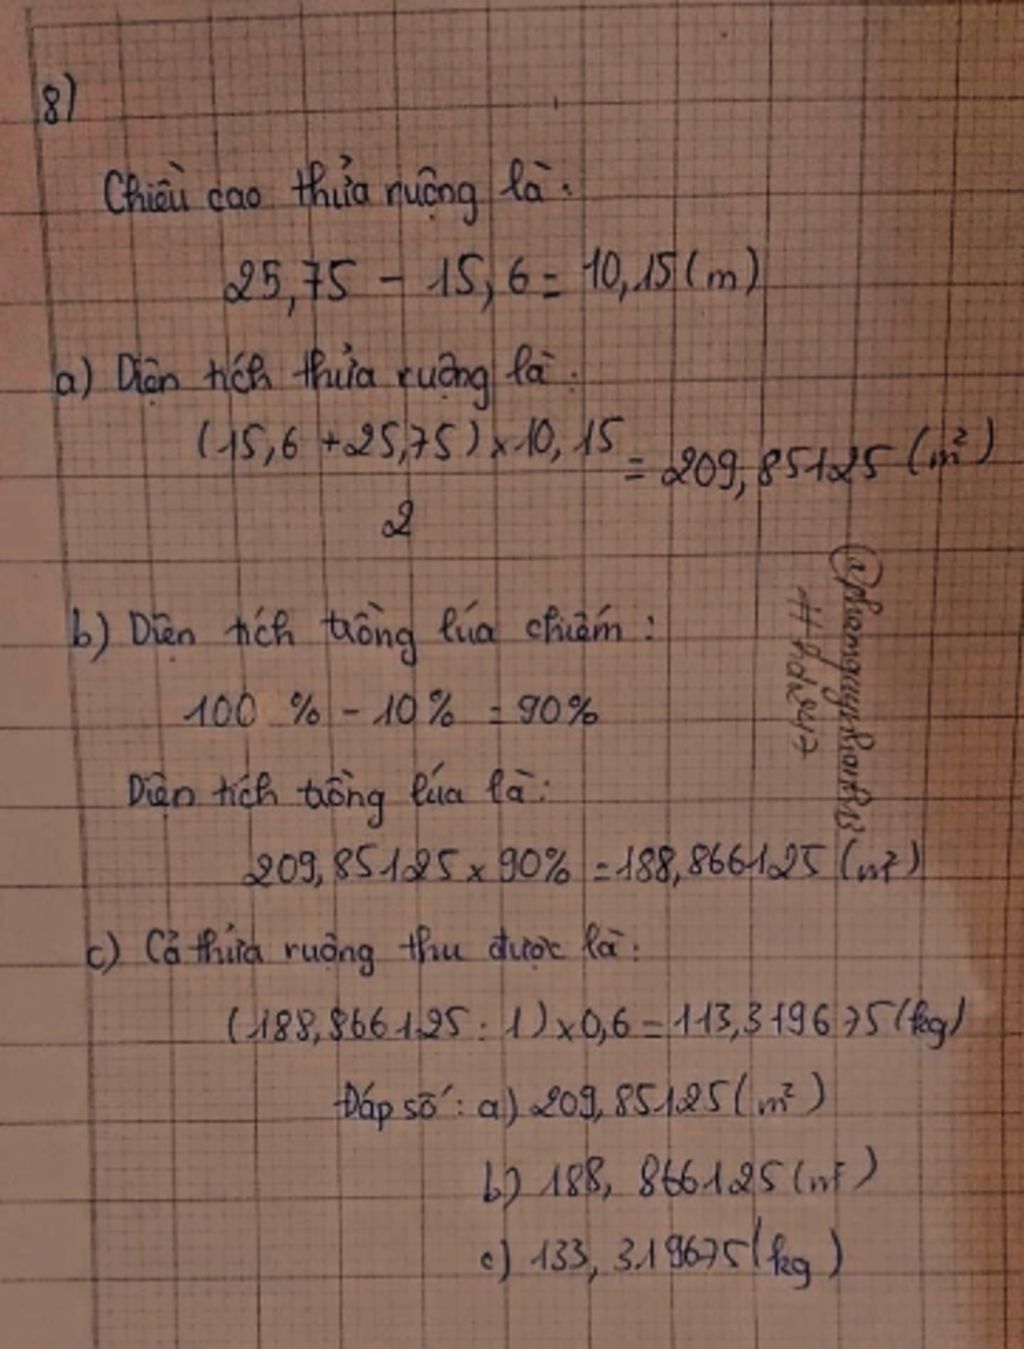 8)
Chiều cao thửa ruộng là:
25,75 - 15,6 = 10,15 (m)
a) Diện tích thửa ruộng là:
(15,6 + 25,75) x 10,15
= 209,85125 (m²)
2
b) Diện tích trồng lúa chiếm:
100 % - 10% = 90%
Diện tích trồng lúa là:
209,85125 x 90% = 188,866125 (m²)
c) Cả thửa ruộng thu được là:
(188,866125 : 1) x 0,6 = 113,319675 (kg)
Đáp số: a) 209,85125 (m²)
b) 188,866125 (m²)
c) 133,319675 (kg)